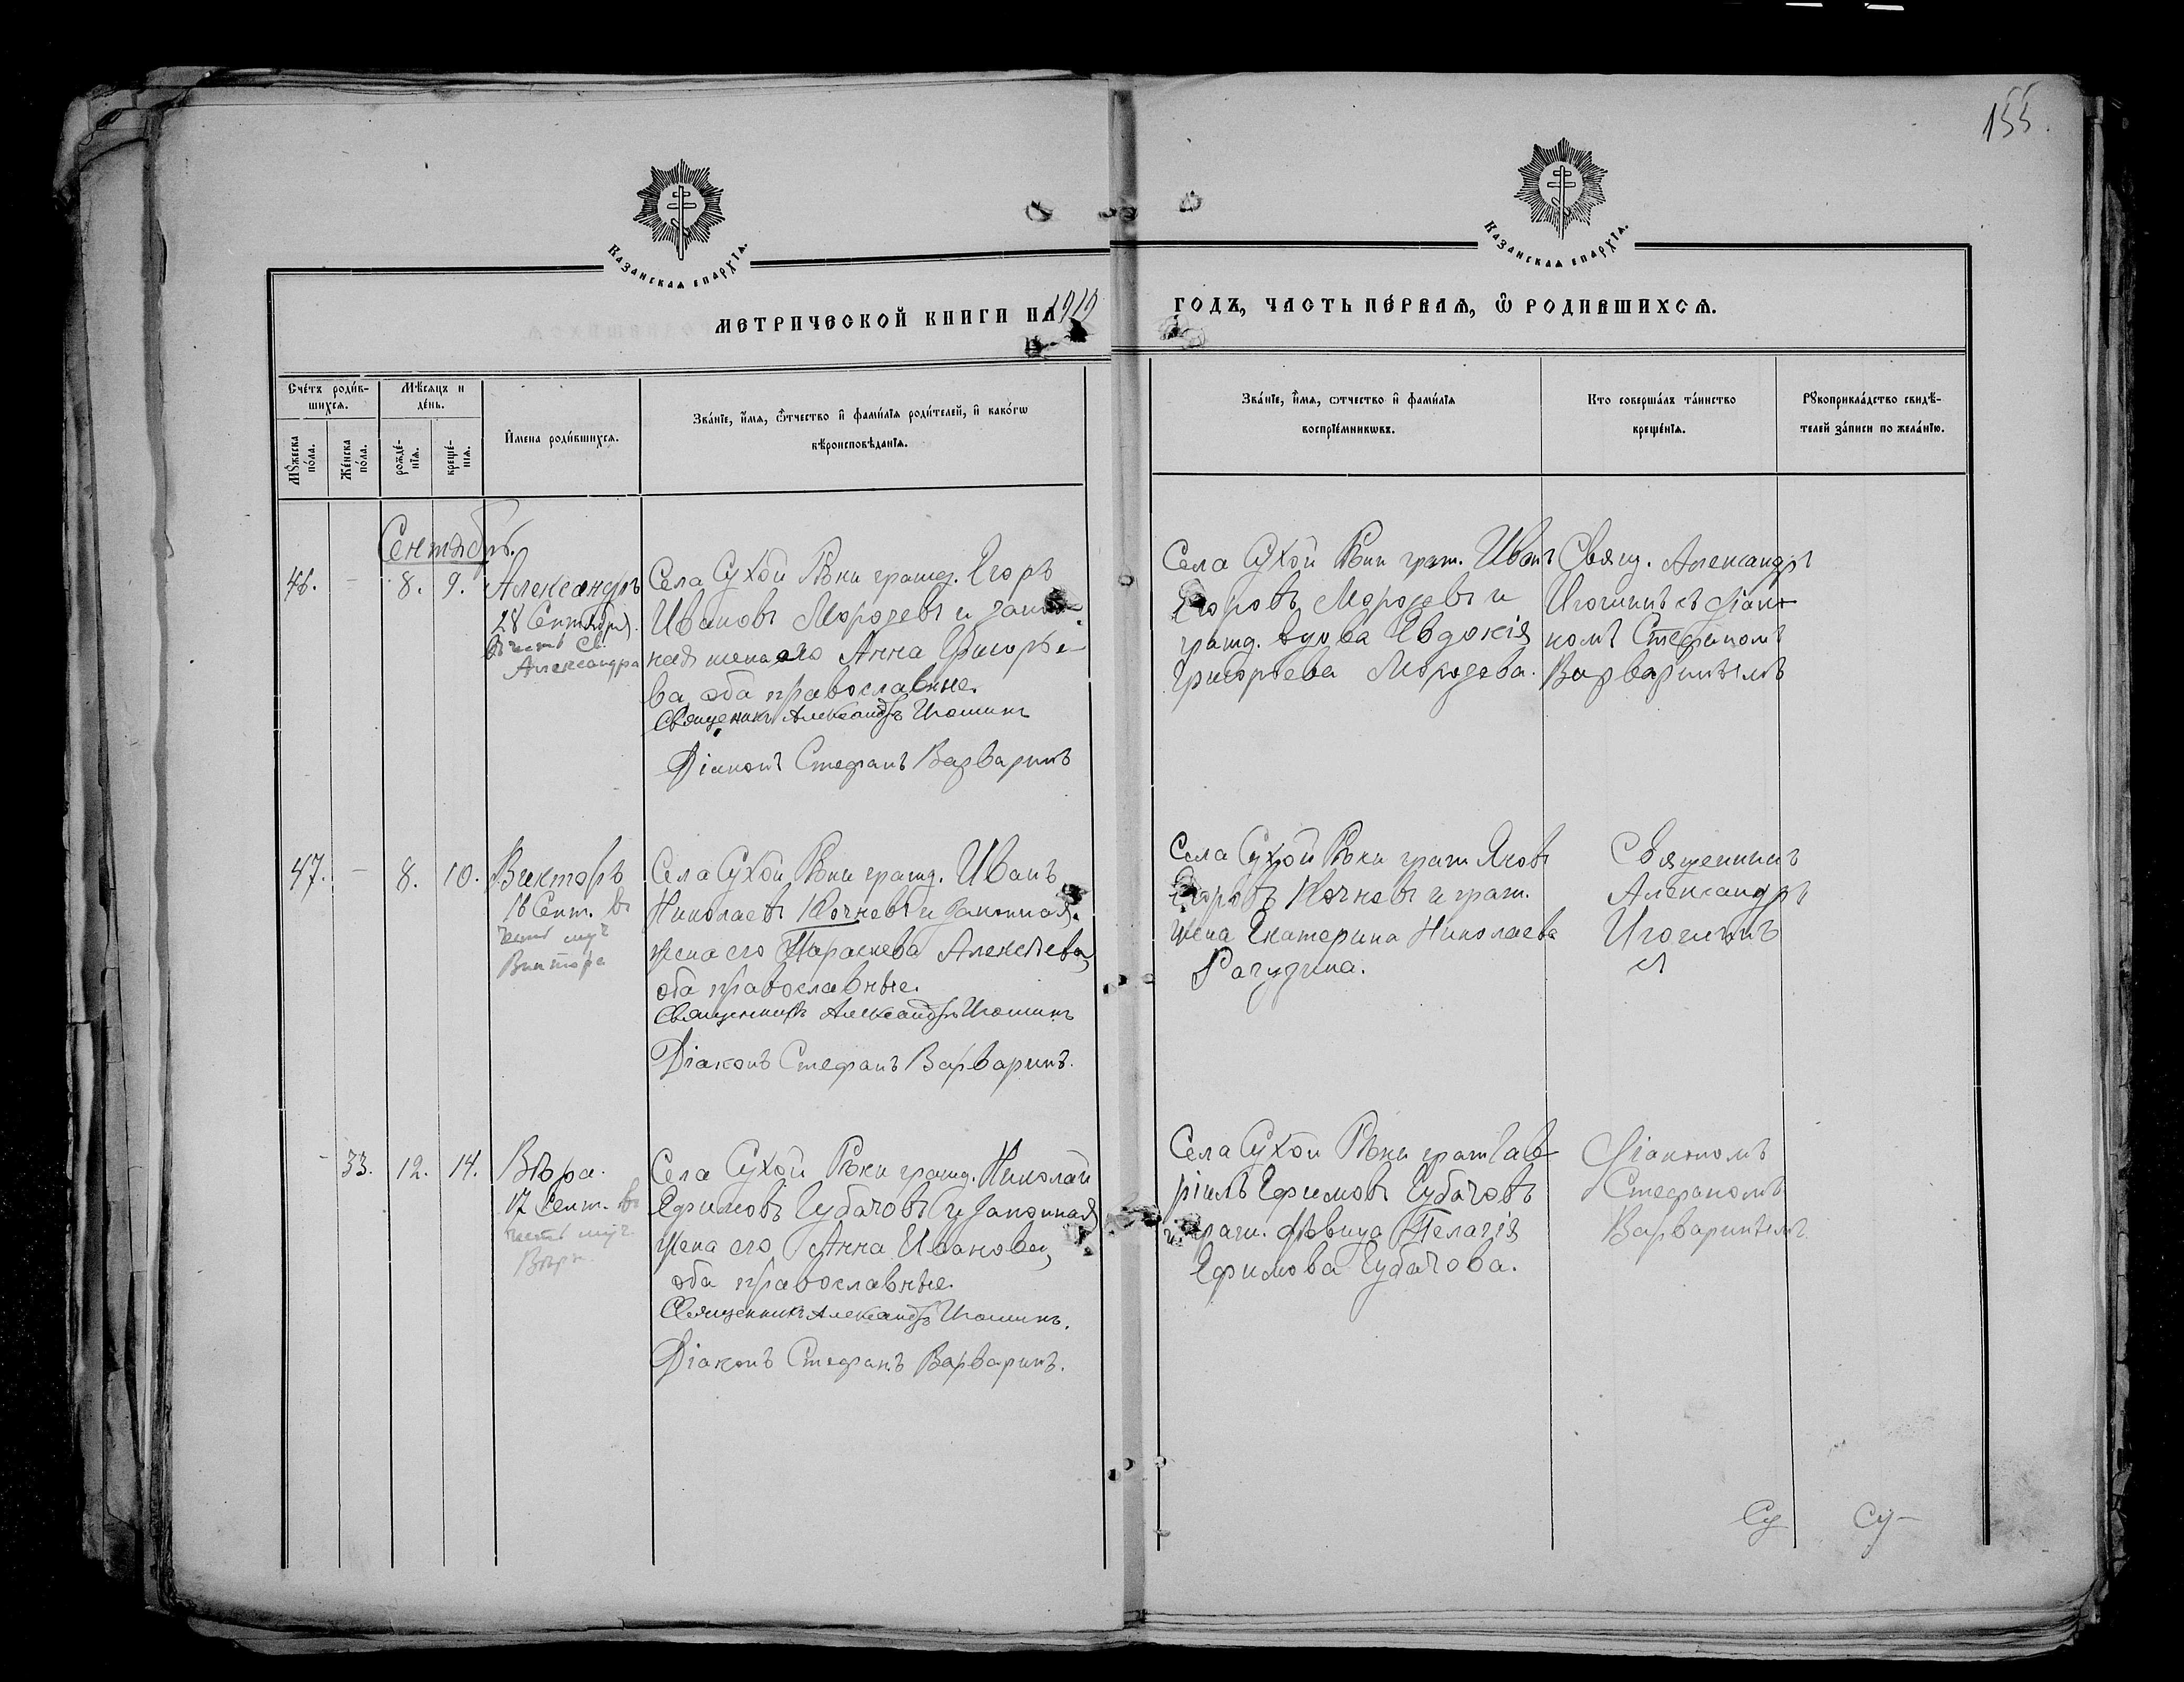 155.
Казанская епархїа.
Казанская епархїа.
МЕТРИЧЕСКОЙ КНИГИ НА 1919
ГОДЪ, ЧАСТЬ ПЕ́РВАЯ, Ѽ РОДИВШИХСѦ.
Сче́тъ роди́в-
шихсѧ.
Мѣ́сяцъ и
де́нь.
Мꙋ́жеска
по́ла.
Же́нска
по́ла.
рожде́-
нїѧ.
креще́-
нїѧ.
И҆мена роди́вшихсѧ.
Зва́нїе, и҆́мѧ, ѻ҆́тчество и҆ фами́лїѧ роди́телей, и҆ како́гѡ
вѣроисповѣ́данїѧ.
Зва́нїе, и҆́мѧ, ѻтчество и҆ фами́лїѧ
воспрїе́мникѡвъ.
Кто соверша́лъ та́инство
креще́нїѧ.
Рꙋкоприкла́дство свидѣ́-
телей за́писи по жела́нїю.
Сентябрь.
46. - 8. 9. Александръ
28 Сентября.
Въ честь Св.
Александра
Села Сухой Рѣки гражд. Егоръ
Ивановъ Морозевъ и закон-
ная жена его Анна Григорье-
ва, оба православные.
Священникъ Александръ Игошинъ
Діаконъ Стефанъ Варваринъ
Села Сухой Рѣки граж. Иванъ
Егоровъ Морозевъ и
гражд. вдова Евдокія
Григорьева Морозева.
Свящ. Александръ
Игошинъ съ діако-
номъ Стефаномъ
Варваринымъ
47. - 8. 10. Викторъ
16 Сент. въ
честь муч
Виктора
Села Сухой Рѣки гражд. Иванъ
Николаевъ Кочневъ и законная
жена его Параскева Алексѣева,
оба православные.
Священникъ Александръ Игошинъ
Діаконъ Стефанъ Варваринъ.
Села Сухой Рѣки граж Яковъ
Егоровъ Кочневъ и граж.
жена Екатерина Николаева
Рагузина.
Священникъ
Александръ
Игошинъ
- 33. 12. 14. Вѣра.
17 Сент. въ
честь муч
Вѣры
Села Сухой Рѣки гражд. Николай
Ефимовъ Губачовъ и законная
жена его Анна Иванова,
оба православные.
Священникъ Александръ Игошинъ.
Діаконъ Стефанъ Варваринъ.
Села Сухой Рѣки граж Гав-
ріилъ Ефимовъ Губачовъ
и граж. дѣвица Пелагія
Ефимова Губачова.
Діакономъ
Стефаномъ
Варваринымъ.
Су Су-